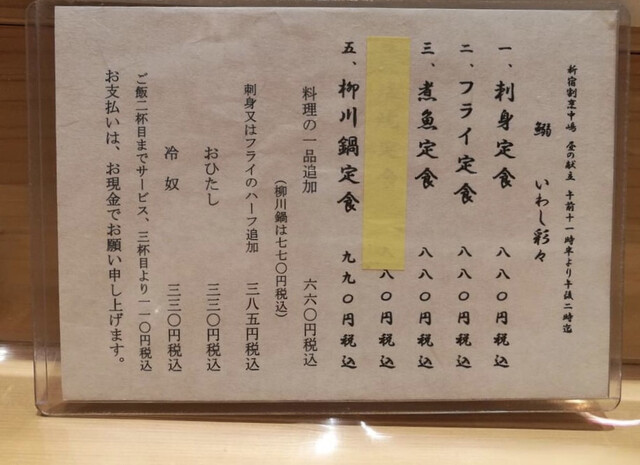 新宿割烹中嶋 昼の献立 午前十一時半より午後二時迄
鰯 いわし彩々
一、刺身定食 八八〇円税込
二、フライ定食 八八〇円税込
三、煮魚定食 八八〇円税込
八〇円税込
五、柳川鍋定食 九九〇円税込
料理の一品追加 六六〇円税込
（柳川鍋は七七〇円税込）
刺身又はフライのハーフ追加 三八五円税込
おひたし 三三〇円税込
冷奴 三三〇円税込
ご飯二杯目までサービス、三杯目より一一〇円税込
お支払いは、お現金でお願い申し上げます。